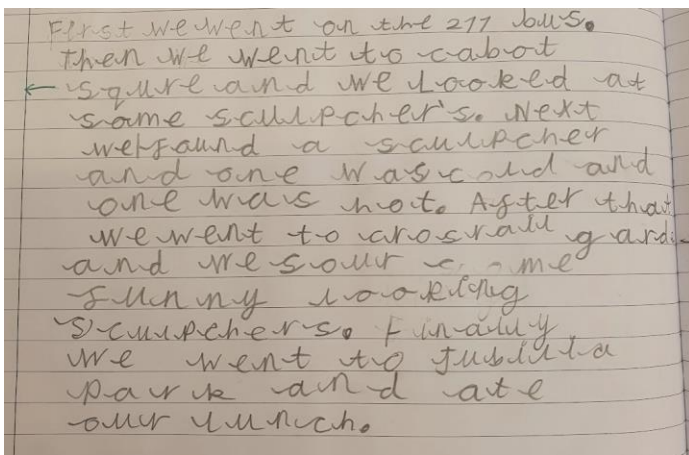 First we went on the 277 bus.
Then we went to cabot
squre and we looked at
some sculpcher's. Next
we found a sculpcher
and one was cold and
one was hot. After that
we went to crosrall gard
and we sour some
funny looking
sculpchers. Finaly
we went to
park and ate
our lunch.